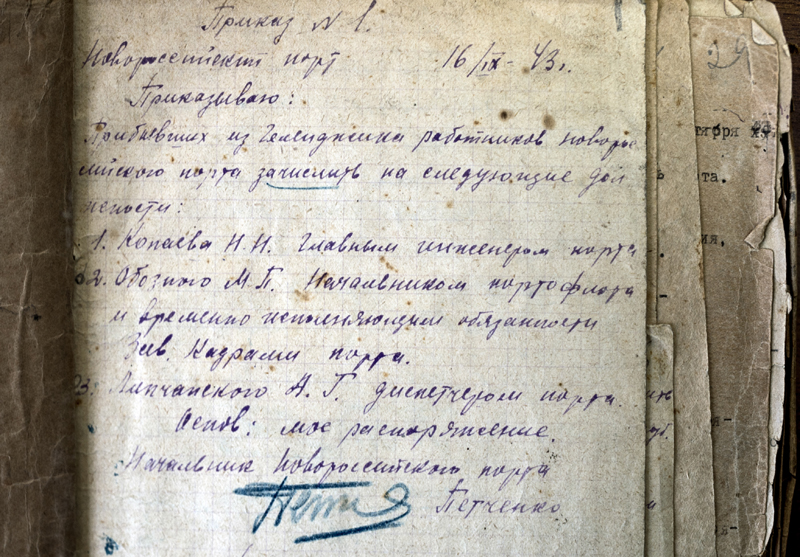 Приказ N 1.
Новороссийский порт 16/IX - 43 г.
Приказываю:
Прибывших из Геленджика работников новорос
сийского порта зачислить на следующие дол
жности:
1. Копаева Н.Н. Главным инженером порта
2. Обозного М.П. Начальником портофлота
и временно исполняющим обязанности
Зав. Кадрами порта.
3. А. Г. диспетчером порта.
Основ: мое распоряжение.
Начальник Новороссийского порта
Петченко
29
тября 43.
та.
ия,